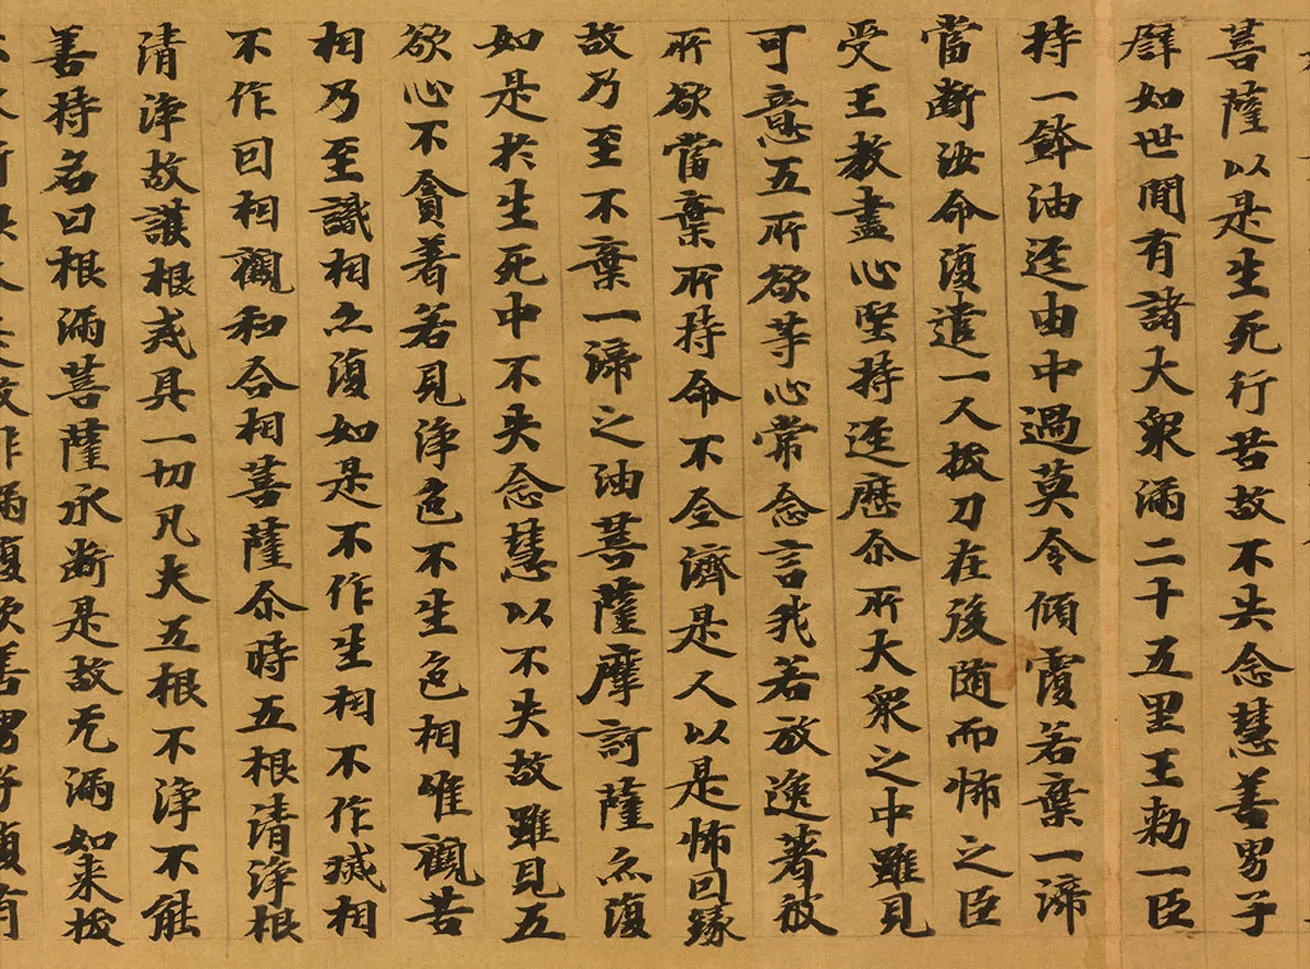 菩薩以是生死行苦故不失念慧善男子
辟如世間有諸大衆滿二十五里王勅一臣
持一鉢油逕由中過莫令傾覆若棄一渧
當斷汝命復遣一人拔刀在後隨而怖之臣
受王教盡心堅持逕歷尒所大衆之中雖見
可意五所欲等心常念言我若放逸著彼
所欲當棄所持命不全濟是人以是怖因緣
故乃至不棄一渧之油菩薩摩訶薩亦復
如是於生死中不失念慧以不失故雖見五
欲心不貪著若見淨色不生色相唯觀苦
相乃至識相亦復如是不作生相不作滅相
不作因相觀和合相菩薩尒時五根清淨根
清淨故護根戒具一切凡夫五根不淨不能
善持名曰根漏菩薩永斷是故无漏如來拔